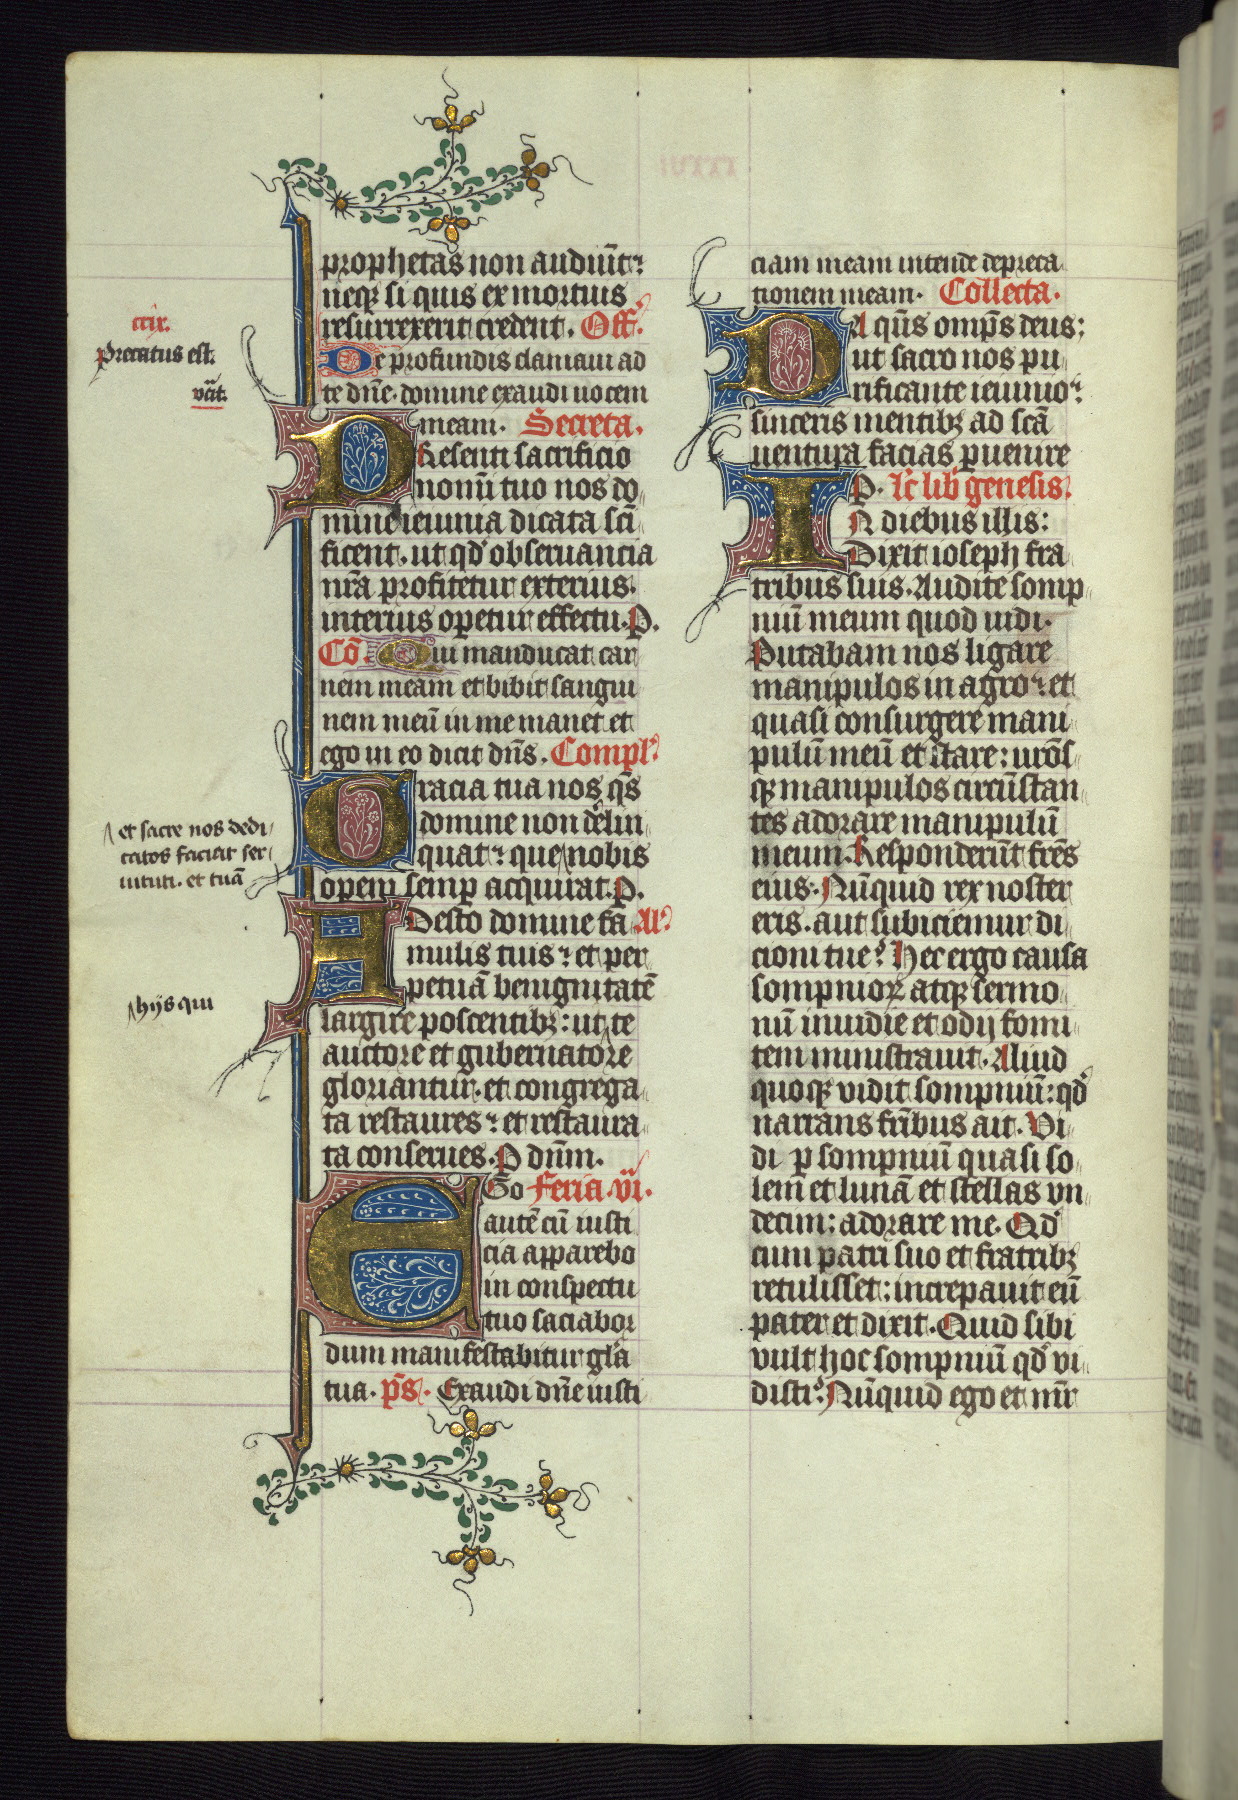 prophetas non audiūt:
neqꝫ si quis ex mortuis
resurrexerit credent. Off.
De profundis clamaui ad
te dn̄e. domine exaudi uocem
meam. Secreta.
Presenti sacrificio
nomī tuo nos do
mine ieiunia dicata scī
ficent. ut qd' obseruancia
nr̄a profitetur exterius.
interius oꝑetur effectu. P.
Cō. Qui manducat car
nem meam et bibit sangui
nem meū in me manet et
ego in eo dicit dn̄s. Compl'
Gracia tua nos qs̄
domine non delin
quat: que nobis
opem semꝑ acquirat. P.
Adesto domine fa Al'
mulis tuis: et per
petuā benignitatē
largire poscentibꝫ: ut te
auctore et gubernatore
gloriantur. et congrega
ta restaures: et restaura
ta conserues. P dnm̄.
Ego Feria .vi.
autē cū iusti
cia apparebo
in conspectu
tuo saciabor
dum manifestabitur gl'a
tua. ps̄. Exaudi dn̄e iusti
ciam meam intende depreca
tionem meam. Collecta.
DA qūs omp̄s deus:
ut sacro nos pu
rificante ieiunio:
sinceris mentibꝫ ad scā
uentura facias ꝑuenire
P. lc̄ lib' genesis.
IN diebus illis:
Dixit ioseph fra
tribus suis. Audite somp
niū meum quod uidi.
Putabam nos ligare
manipulos in agro: et
quasi consurgere mani
pulū meū et stare: urōs
qꝫ manipulos circūstan
tes adorare manipulū
meum. Responderūt frēs
eius. Nūquid rex noster
eris. aut subiciemur di
cioni tue? Hec ergo causa
sompnioꝝ atqꝫ sermo
nū inuidie et odij fomi
tem ministrauit. Aliud
quoqꝫ vidit sompniū: qd'
narrans fr̄ibus ait. Vi
di ꝑ sompniū quasi so
lem et lunā et stellas vn
decim: adorare me. Qd'
cum patri suo et fratribꝫ
retulisset: increpauit eū
pater et dixit. Quid sibi
vult hoc sompniū qd' vi
disti? Nūquid ego et mr̄
Precatus est.
et sacre nos dedi
catos faciat ser
uituti. et tuā
hijs qui